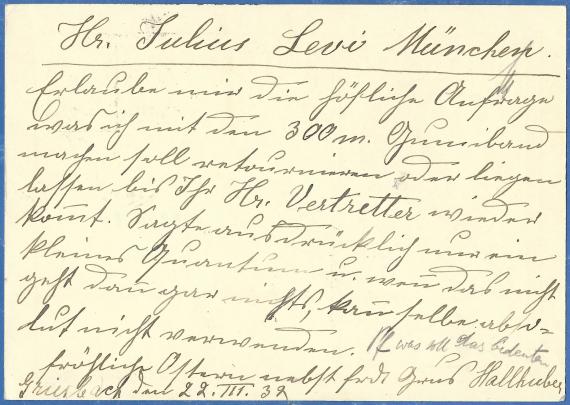 Hr. Julius Levi München.
Erlaube mir die höfliche Anfrage
was ich mit den 300 m. Gumiband
machen soll retournieren oder liegen
lassen bis Ihr Hr. Vertretter wieder
kommt. Sagte ausdrücklich nur ein
kleines Quantum u. wen das nicht
geht dan gar nichts, kan selbe abso-
lut nicht verwenden.
was soll das bedeuten
fröhliche Ostern nebst frdl Grus Hallhuber
Griesbach den 22. III. 32